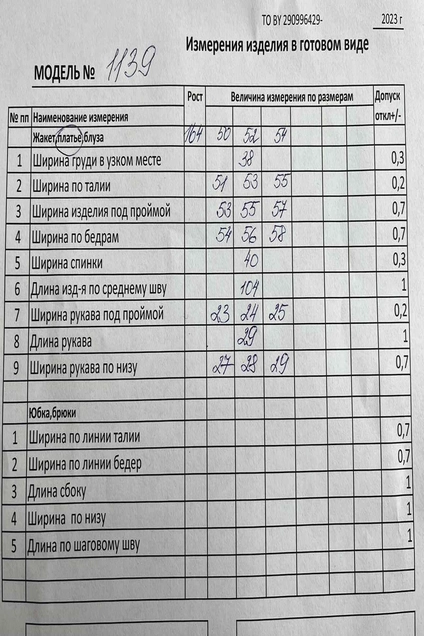 ТО BY 290996429- 2023 г
Измерения изделия в готовом виде
МОДЕЛЬ № 1139
№ пп Наименование измерения Рост Величина измерения по размерам Допуск откл+/-
Жакет,платье,блуза 164 50 52 54
1 Ширина груди в узком месте 38 0,3
2 Ширина по талии 51 53 55 0,2
3 Ширина изделия под проймой 53 55 57 0,7
4 Ширина по бедрам 54 56 58 0,7
5 Ширина спинки 40 0,3
6 Длина изд-я по среднему шву 104 1
7 Ширина рукава под проймой 23 24 25 0,2
8 Длина рукава 29 1
9 Ширина рукава по низу 27 28 29 0,7
Юбка,брюки
1 Ширина по линии талии 0,7
2 Ширина по линии бедер 0,7
3 Длина сбоку 1
4 Ширина по низу 1
5 Длина по шаговому шву 1